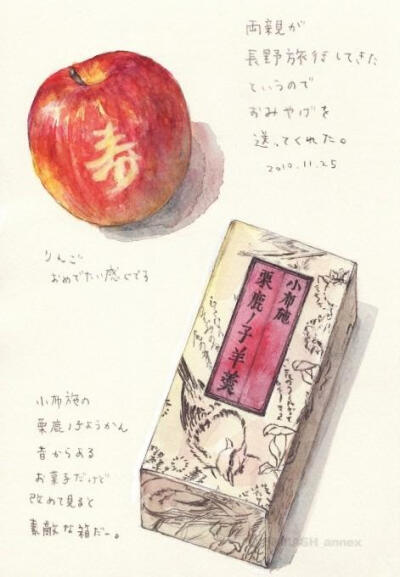 両親が
長野旅行してきた
というので
おみやげを
送ってくれた。
2010.11.25
寿
りんご
おめでたい感じでる
小布施
栗鹿ノ子羊羹
小布施の
栗鹿ノ子ようかん
昔からある
お菓子だけど
改めて見ると
素敵な箱だー。
annex